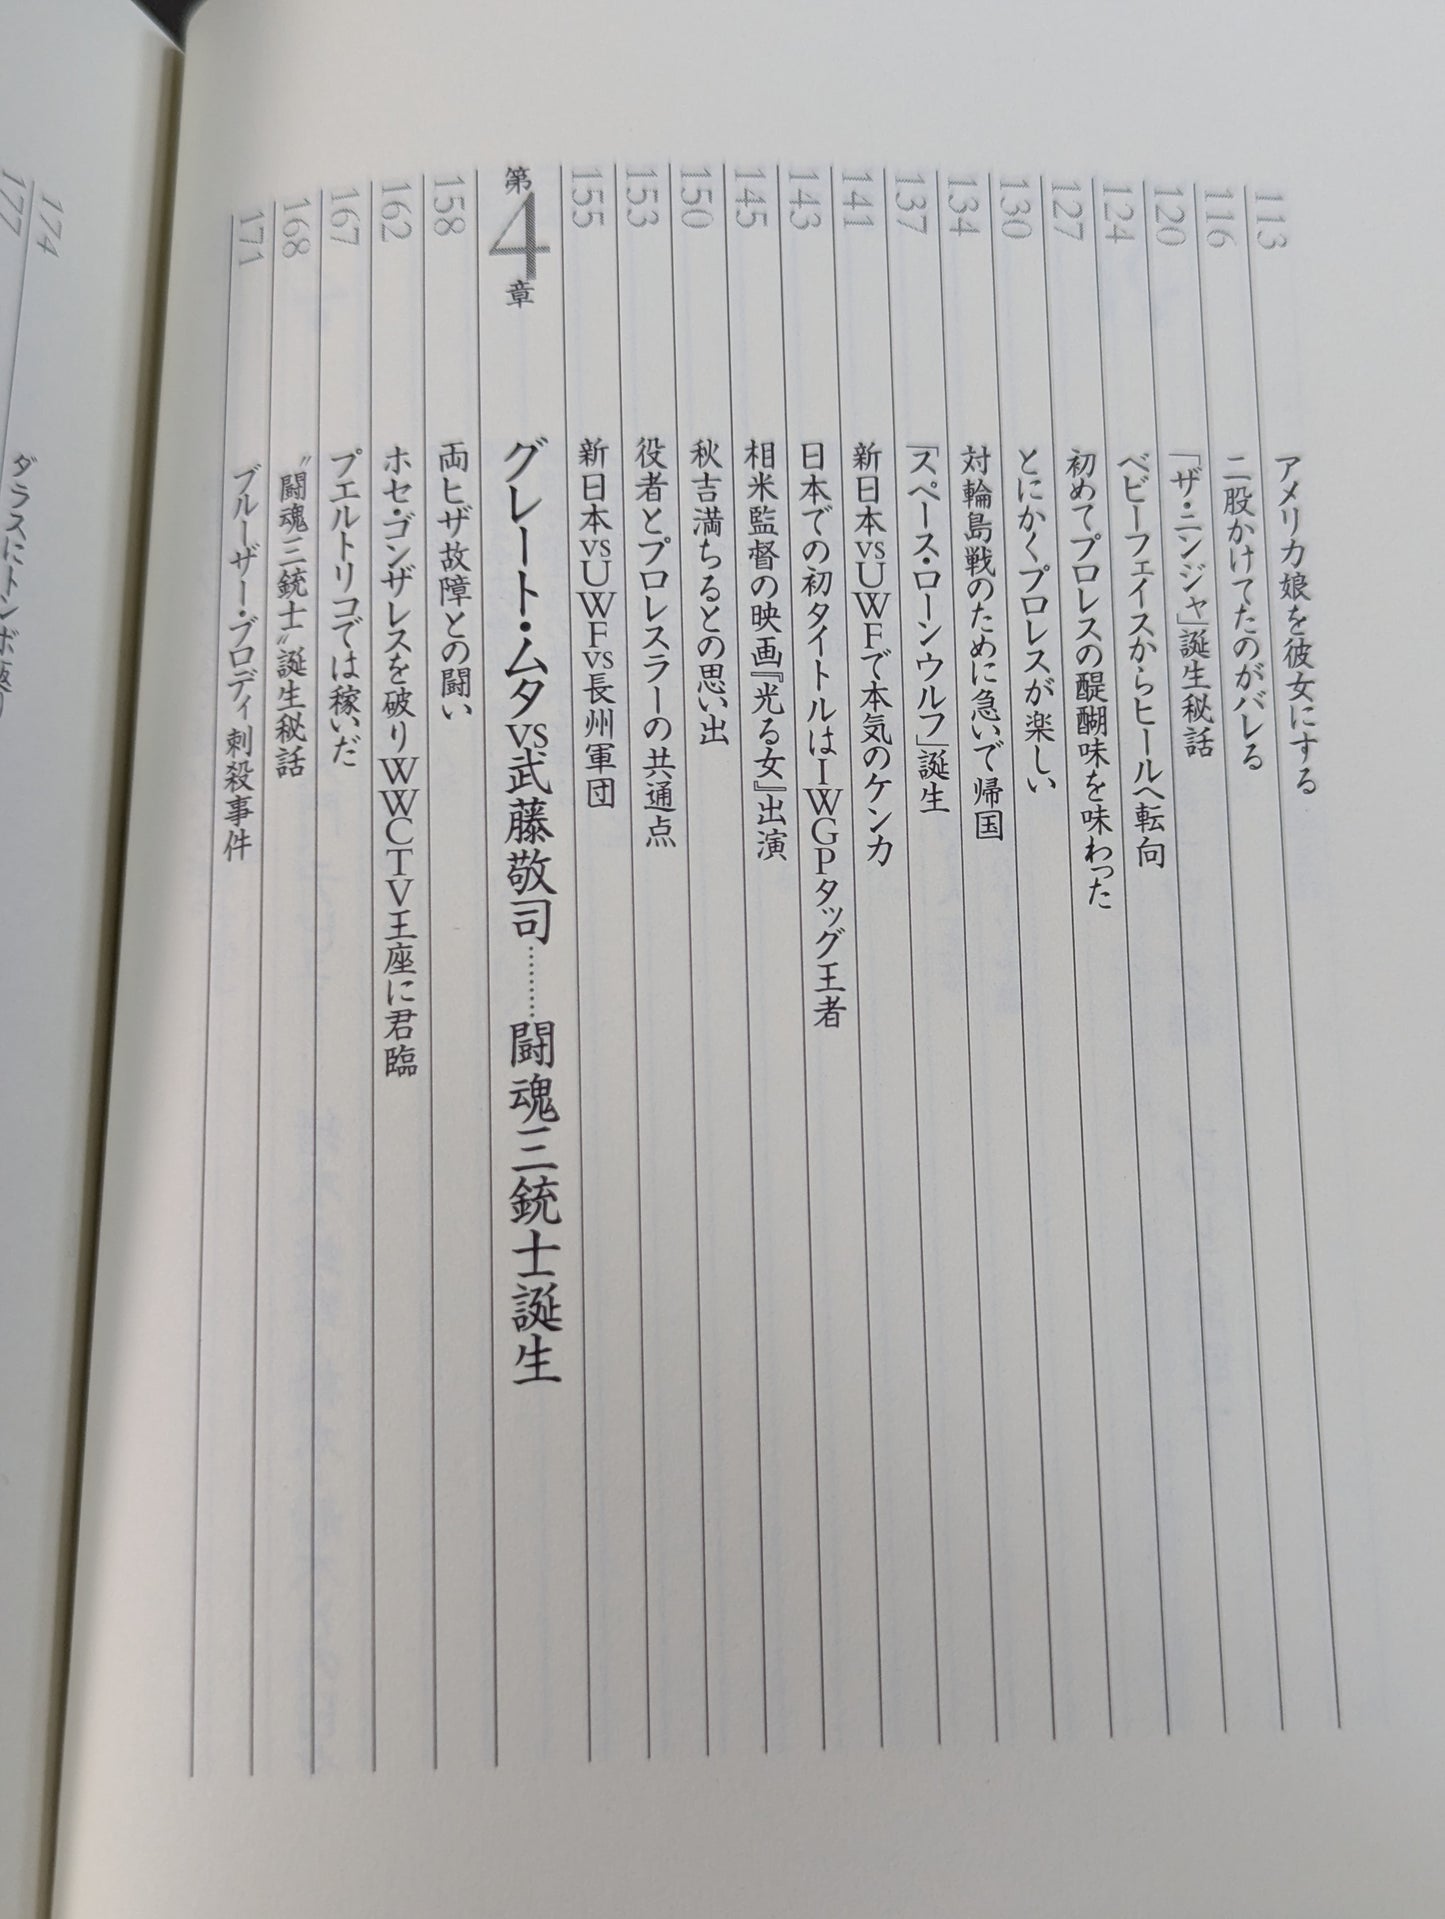 113 アメリカ娘を彼女にする
116 二股かけてたのがバレる
120 「ザ・ニンジャ」誕生秘話
124 ベビーフェイスからヒールへ転向
127 初めてプロレスの醍醐味を味わった
130 とにかくプロレスが楽しい
134 対輪島戦のために急いで帰国
137 「スペース・ローンウルフ」誕生
141 新日本vsUWFで本気のケンカ
143 日本での初タイトルはIWGPタッグ王者
145 相米監督の映画『光る女』出演
150 秋吉満ちるとの思い出
153 役者とプロレスラーの共通点
155 新日本vsUWFvs長州軍団
第4章 グレート・ムタvs武藤敬司………闘魂三銃士誕生
158 両ヒザ故障との闘い
162 ホセ・ゴンザレスを破りWWCTV王座に君臨
167 プエルトリコでは稼いだ
168 〝闘魂三銃士〟誕生秘話
171 ブルーザー・ブロディ刺殺事件
174 ダラスにトンボ
177